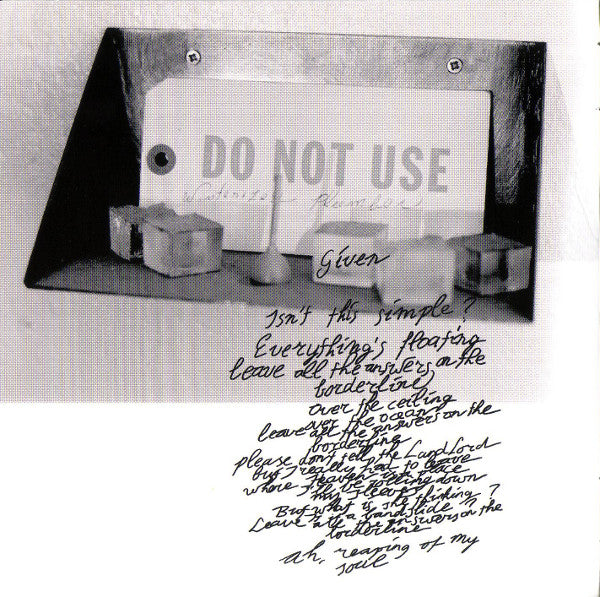 DO NOT USE
Winterized Plumbing
Given
Isn't this simple?
Everything's floating
leave all the answers on the
borderline
over the ceiling
over the ocean
leave all the answers on the
borderline
please don't tell the LandLord
but I really had to leave
where Heaven isn't a place
I'll be rolling down
my sleeves
But what is she thinking?
Is it a landslide?
Leave all the answers on the
borderline
ah, reaping of my
soul